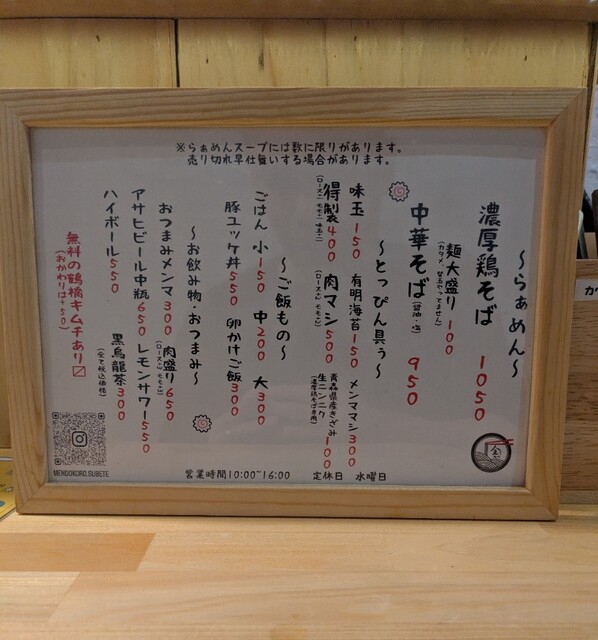 ※らぁめんスープには数に限りがあります。
売り切れ早仕舞いする場合があります。
～らぁめん～
濃厚鶏そば 1050
麺大盛り 100
中華そば(醤油・塩) 950
～とっぴん具ぅ～
味玉 150 有明海苔 150 メンマ マシ 300
得製 400 肉マシ 500 青森県産きざみ生ニンニク 100
～ご飯もの～
ごはん 小150 中200 大300
豚ユッケ丼 550 卵かけご飯 300
～お飲み物・おつまみ～
おつまみメンマ 300 肉盛り 650
アサヒビール中瓶 650 レモンサワー 550
ハイボール 550 黒烏龍茶 300
(全て税込価格)
無料の鶴橋キムチあり〼
(おかわりは+50)
MENDOKORO.SUBETE
営業時間10:00~16:00 定休日 水曜日